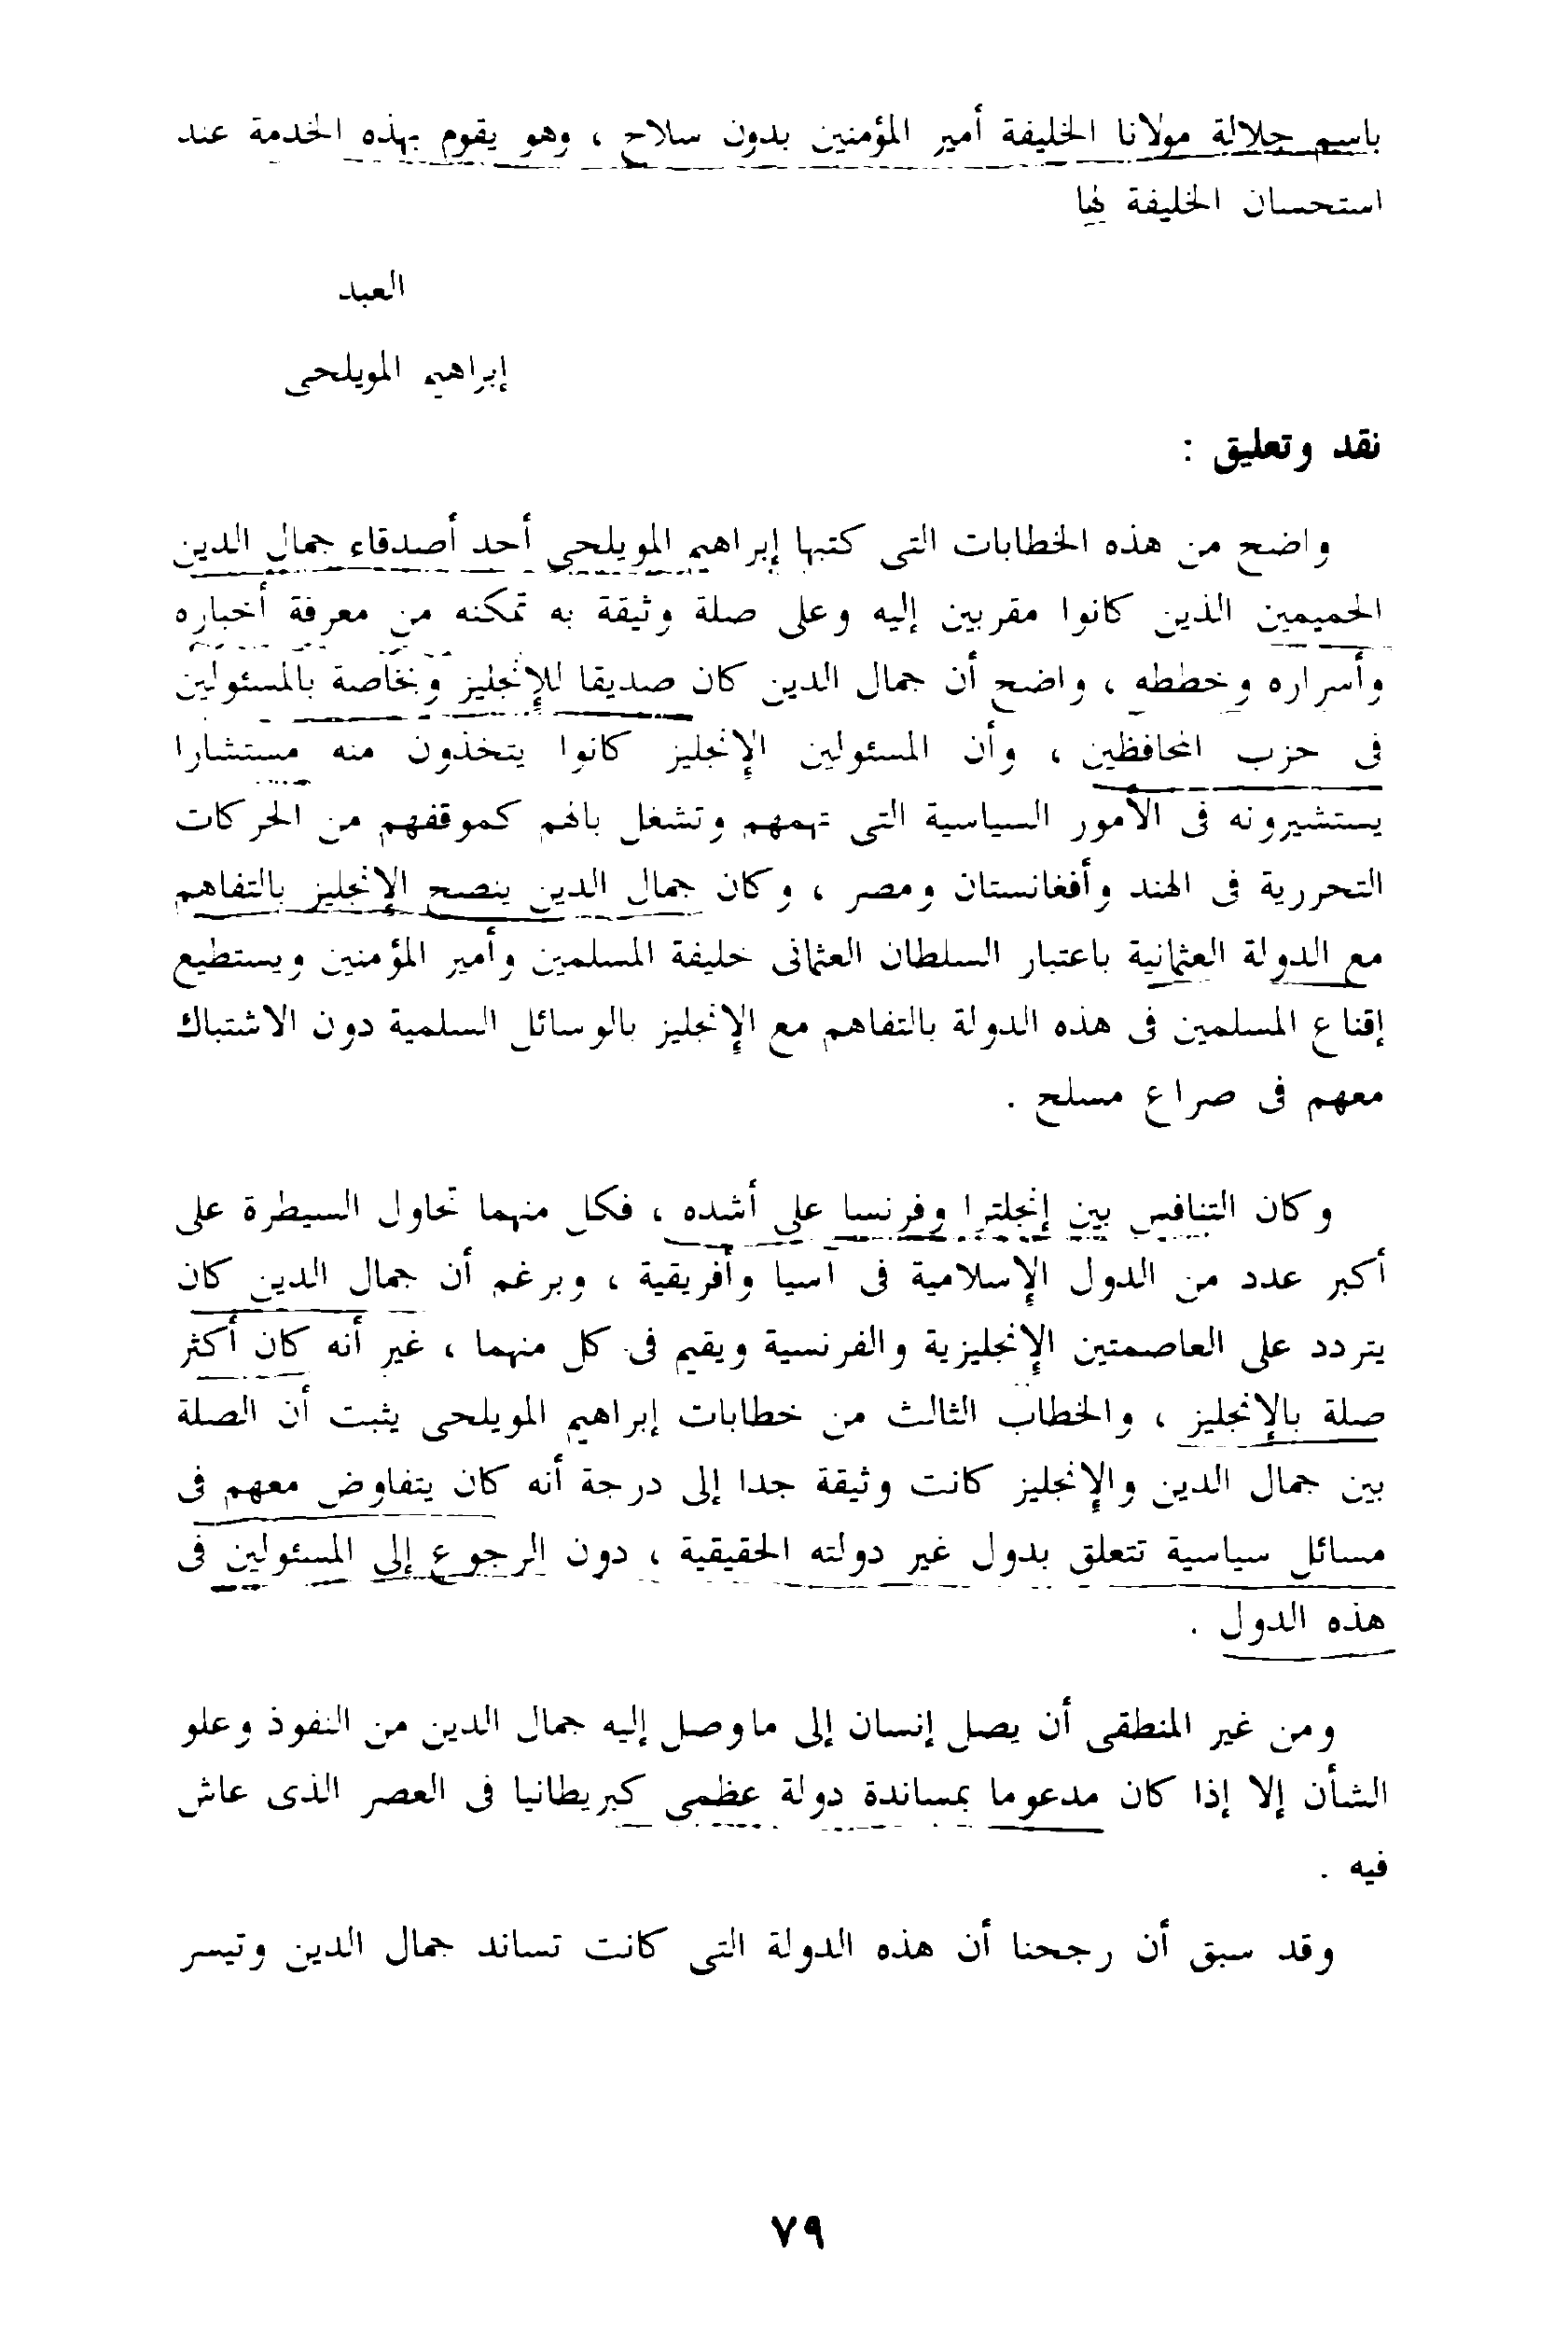 باسم جلالة مولانا الخليفة أمير المؤمنين بدون سلاح ، وهو يقوم بهذه الخدمة عند
استحسان الخليفة لها
العبد
إبراهيم المويلحى
نقد وتعليق :
واضح من هذه الخطابات التى كتبها إبراهيم المويلحى أحد أصدقاء جمال الدين
الحميمين الذين كانوا مقربين إليه وعلى صلة وثيقة به تمكنه من معرفة أخباره
وأسراره وخططه ، واضح أن جمال الدين كان صديقا للإنجليز وبخاصة بالمسئولين
فى حزب المحافظين ، وأن المسئولين الإنجليز كانوا يتخذون منه مستشارا
يستشيرونه فى الأمور السياسية التى تهمهم وتشغل بالهم كموقفهم من الحركات
التحررية فى الهند وأفغانستان ومصر ، وكان جمال الدين ينصح الإنجليز بالتفاهم
مع الدولة العثمانية باعتبار السلطان العثمانى خليفة المسلمين وأمير المؤمنين ويستطيع
إقناع المسلمين فى هذه الدولة بالتفاهم مع الإنجليز بالوسائل السلمية دون الاشتباك
معهم فى صراع مسلح .
وكان التنافس بين إنجلترا وفرنسا على أشده ، فكل منهما تحاول السيطرة على
أكبر عدد من الدول الإسلامية فى آسيا وأفريقية ، وبرغم أن جمال الدين كان
يتردد على العاصمتين الإنجليزية والفرنسية ويقيم فى كل منهما ، غير أنه كان أكثر
صلة بالإنجليز ، والخطاب الثالث من خطابات إبراهيم المويلحى يثبت أن الصلة
بين جمال الدين والإنجليز كانت وثيقة جدا إلى درجة أنه كان يتفاوض معهم فى
مسائل سياسية تتعلق بدول غير دولته الحقيقية ، دون الرجوع إلى المسئولين فى
هذه الدول .
ومن غير المنطقى أن يصل إنسان إلى ماوصل إليه جمال الدين من النفوذ وعلو
الشأن إلا إذا كان مدعوما بمساندة دولة عظمى كبريطانيا فى العصر الذى عاش
فيه .
وقد سبق أن رجحنا أن هذه الدولة التى كانت تساند جمال الدين وتيسر
٧٩